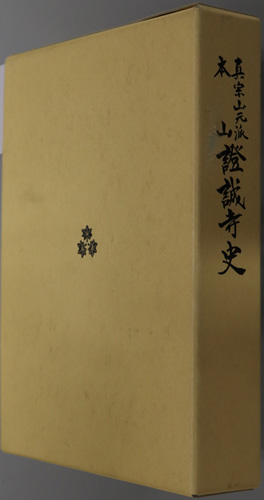 真宗山元派
本山 證誠寺史